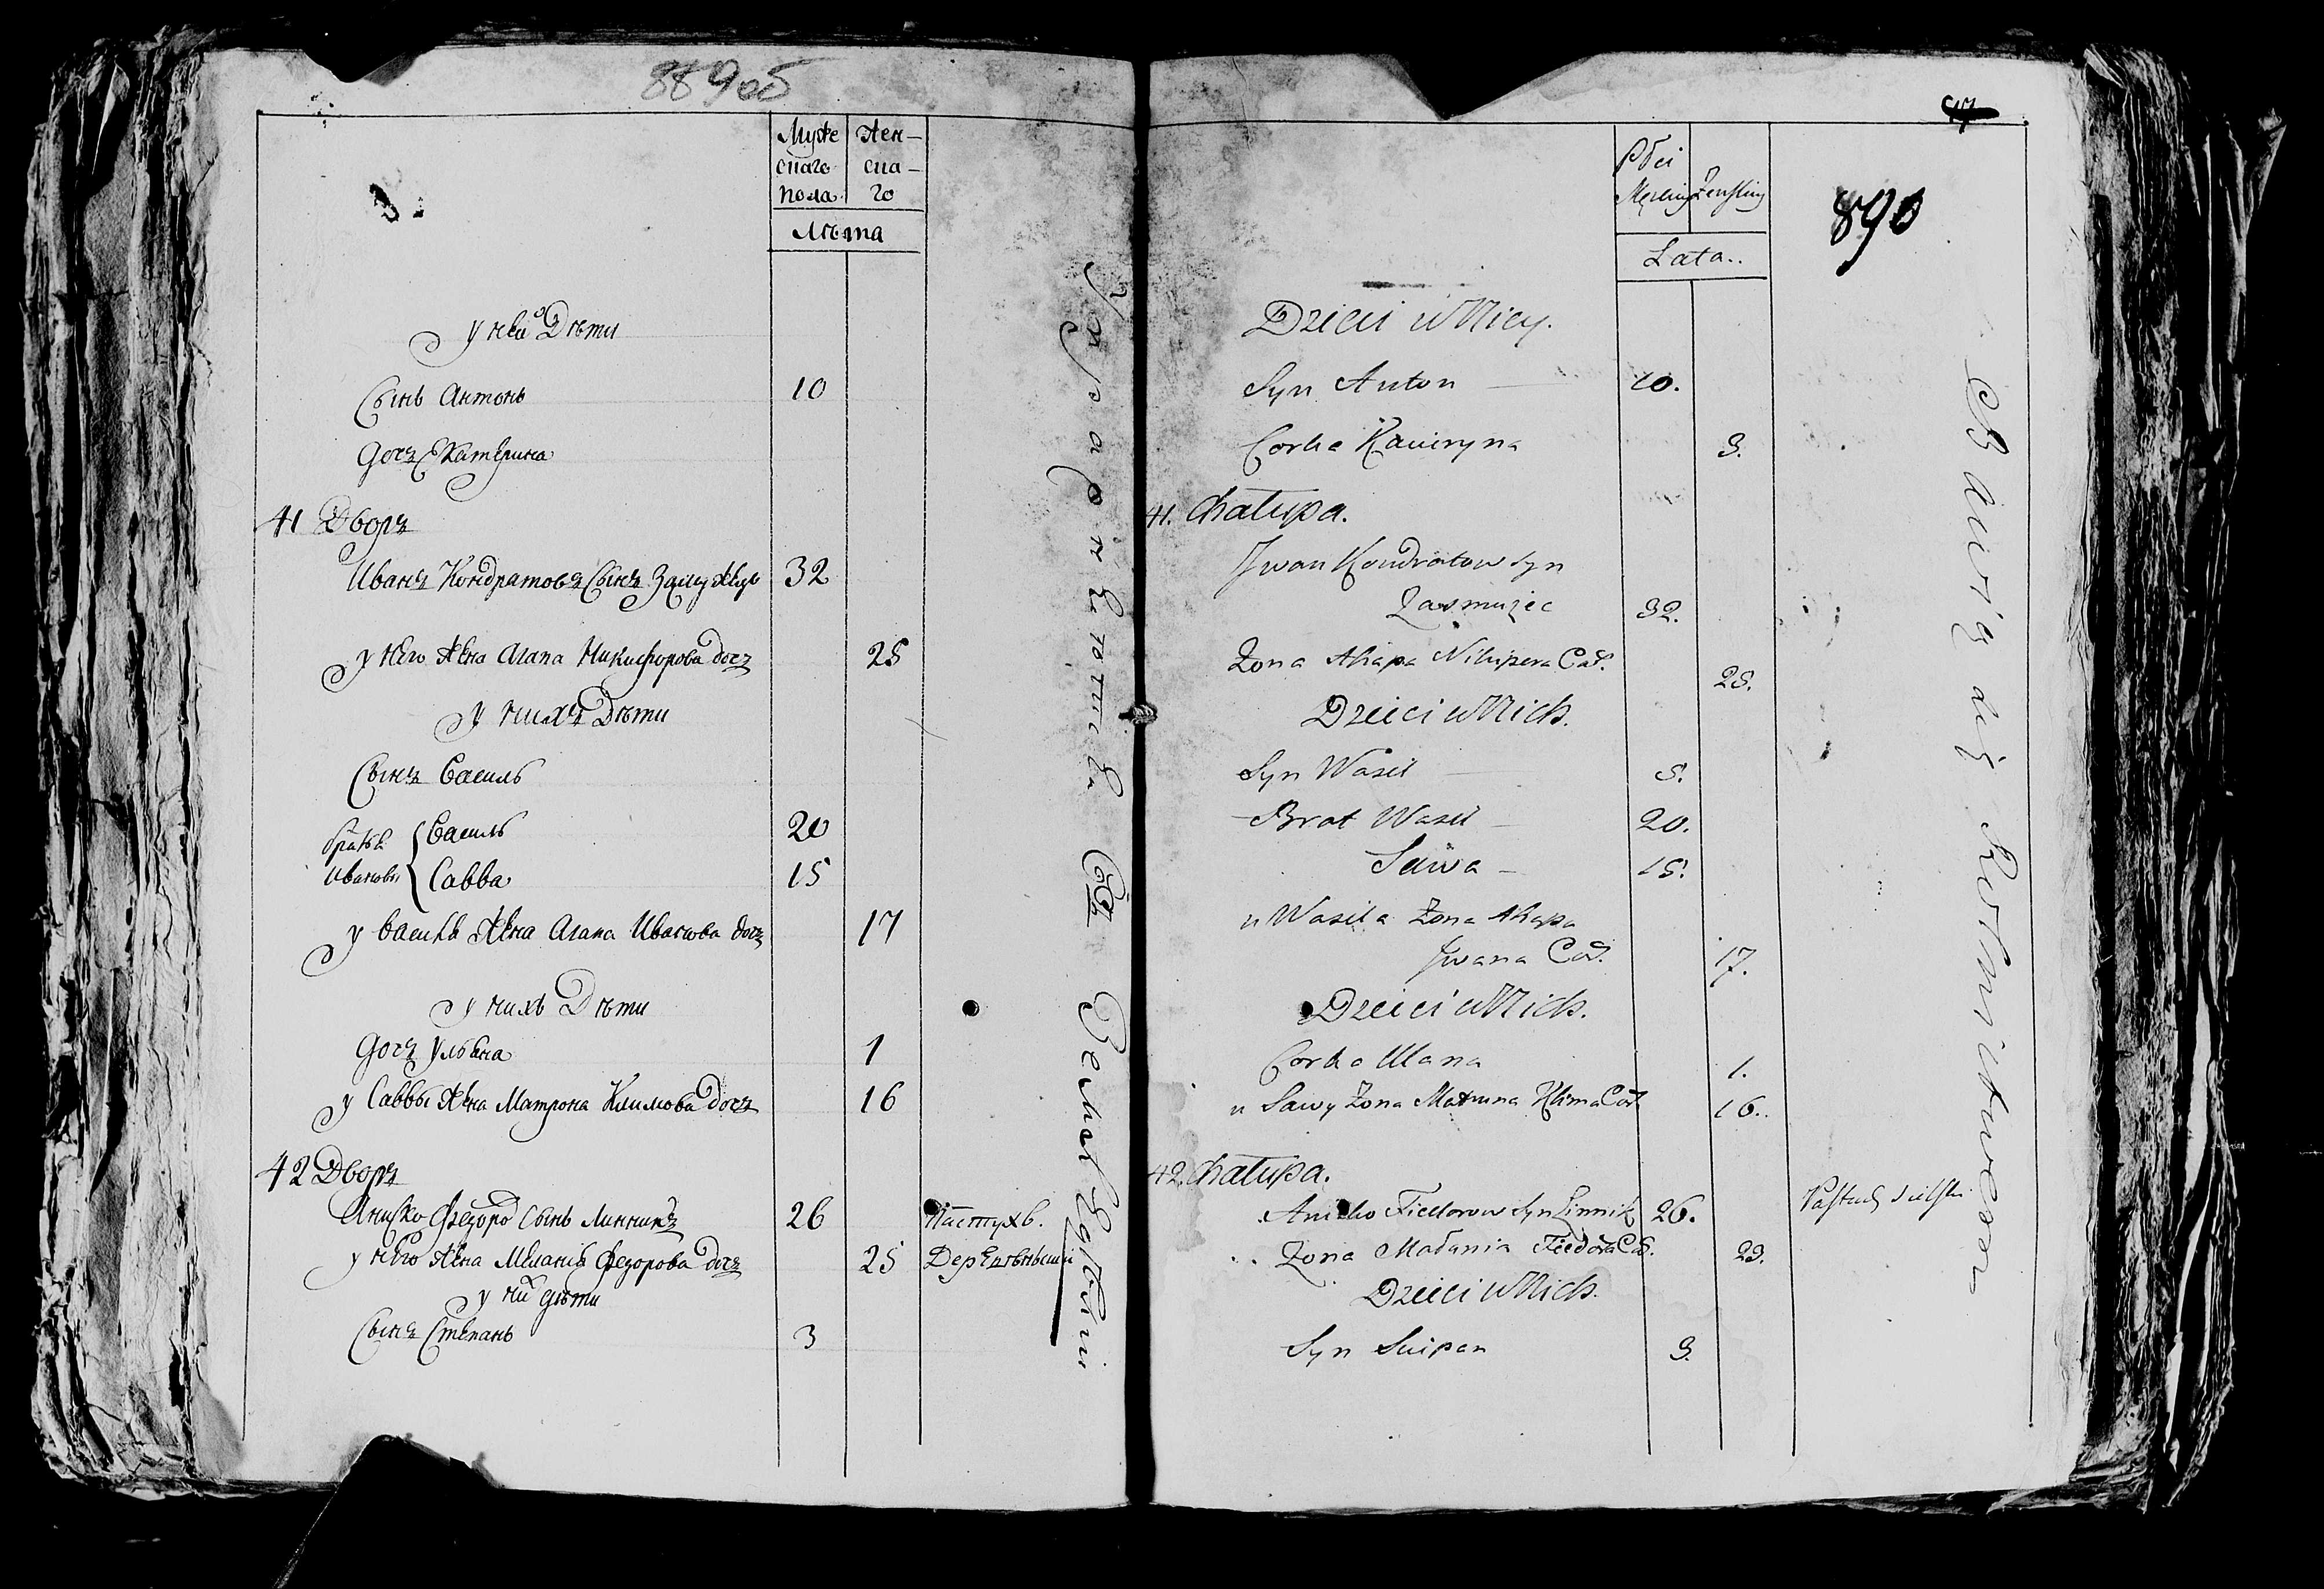 889об
Муже
скаго
пола
Жен-
ска-
го
Лѣта
у неи Дѣти
Сынъ Антонъ 10
Дочъ Екатерина
41 Дворъ
Иванъ Кондратовъ Сынъ 32
у него Жена Агапа Никифорова дочъ 25
у нихъ Дѣти
Сынъ Василь
братья Василь 20
Ивановы Савва 15
у Василя Жена Агапа Иванова дочъ 17
у нихъ Дѣти
Дочъ Ульяна 1
у Саввы Жена Матрона Климова дочъ 16
42 Дворъ
Аниско Федоро Сынъ Линникъ 26 Пастухъ
у него Жена Меланія Федорова дочъ 25 Деревенскій
у них дѣти
Сынъ Степанъ 3
890
Płci
Męskiey
Żeńskiey
Lata..
Dzieci u Niey.
Syn Anton 10.
Corka Kateryna 3.
41. Chałupa.
Jwan Kondratow Syn
Zasmużec 32.
Zona Ahapa Nikipera Cor. 25.
Dzieci u Nich.
Syn Wasil 5.
Brat Wasil 20.
Sawa 15.
u Wasila Zona Ahapa
Jwana Cor. 17.
Dzieci u Nich.
Corka Ulana 1.
u Sawy Zona Matruna Klima Cor. 16.
42. Chałupa.
Anisko Fiedorow Syn Linnik 26. Pastuch sielski
Zona Małania Fiedora Cor. 23.
Dzieci u Nich.
Syn Sciepan 3.